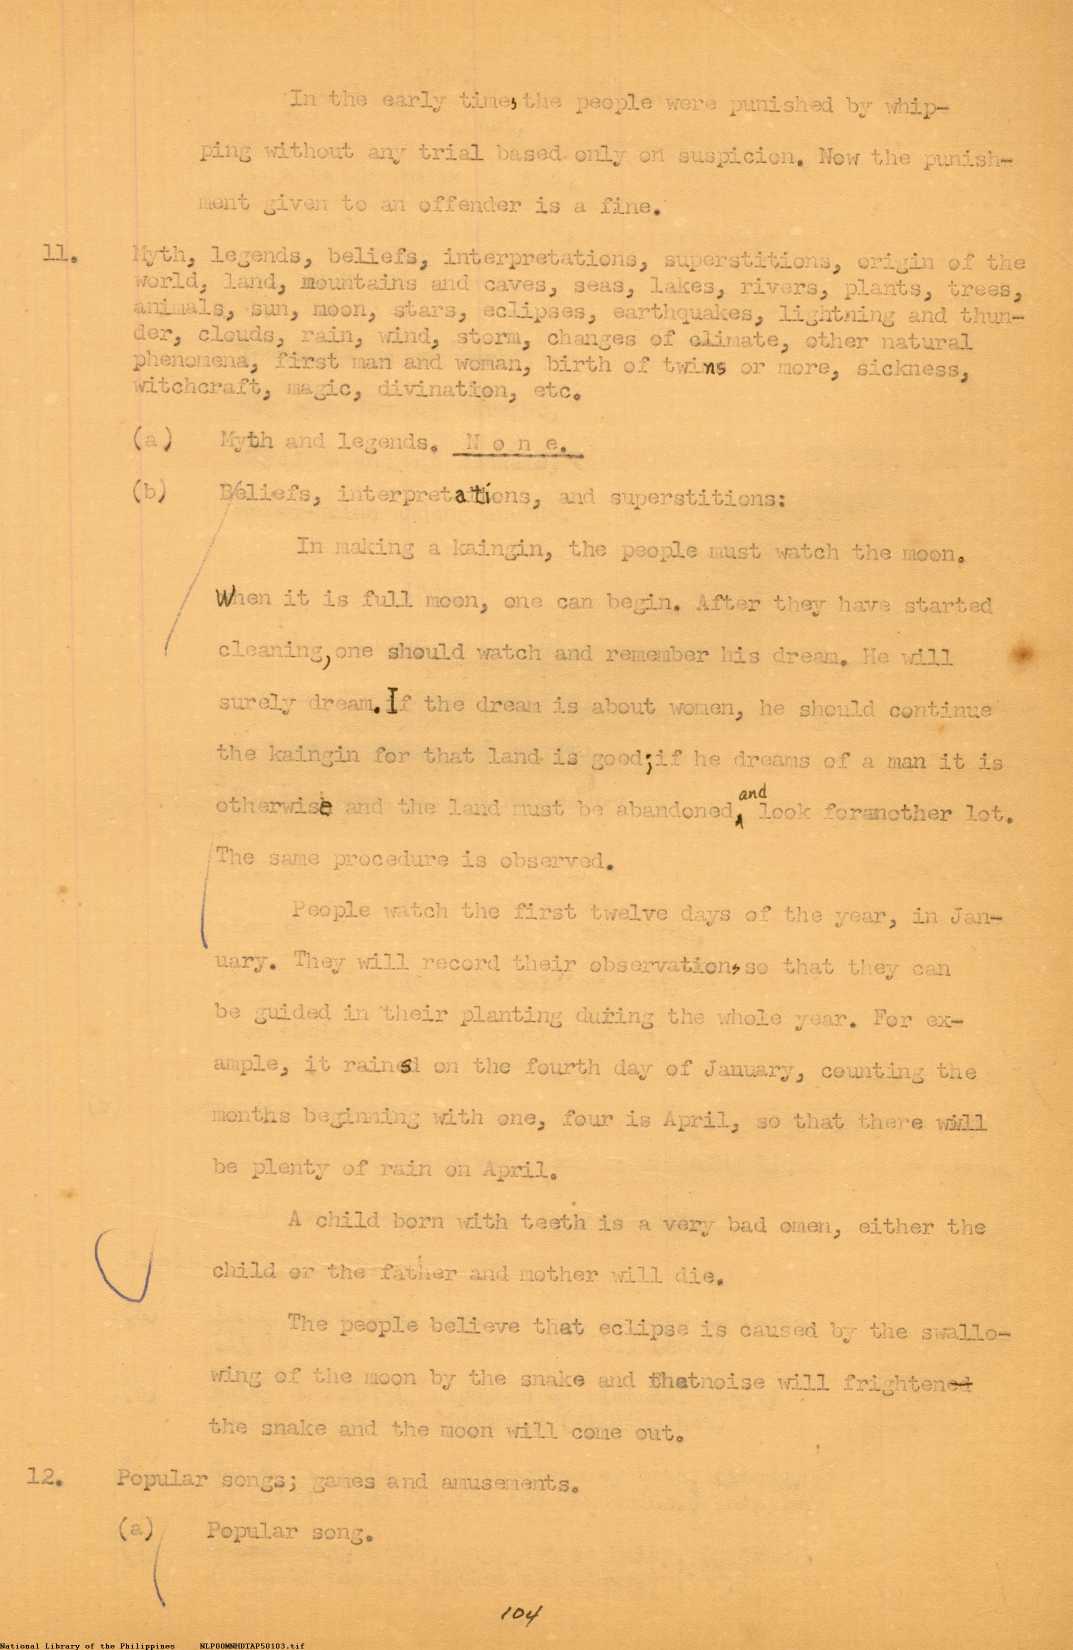 In the early time, the people were punished by whip-
ping without any trial based only on suspicion. Now the punish-
ment given to an offender is a fine.
11. Myth, legends, beliefs, interpretations, superstitions, origin of the
world, land, mountains and caves, seas, lakes, rivers, plants, trees,
animals, sun, moon, stars, eclipses, earthquakes, lightning and thun-
der, clouds, rain, wind, storm, changes of climate, other natural
phenomena, first man and woman, birth of twins or more, sickness,
witchcraft, magic, divination, etc.
(a) Myth and legends. N o n e.
(b) Beliefs, interpretations, and superstitions:
In making a kaingin, the people must watch the moon.
When it is full moon, one can begin. After they have started
cleaning, one should watch and remember his dream. He will
surely dream. If the dream is about women, he should continue
the kaingin for that land is good; if he dreams of a man it is
otherwise and the land must be abandoned, and look foranother lot.
The same procedure is observed.
People watch the first twelve days of the year, in Jan-
uary. They will record their observation, so that they can
be guided in their planting during the whole year. For ex-
ample, it rains on the fourth day of January, counting the
months beginning with one, four is April, so that there will
be plenty of rain on April.
A child born with teeth is a very bad omen, either the
child or the father and mother will die.
The people believe that eclipse is caused by the swallo-
wing of the moon by the snake and thatnoise will frighten
the snake and the moon will come out.
12. Popular songs; games and amusements.
(a) Popular song.
104
National Library of the Philippines NLP00MNHDTAP50103.tif